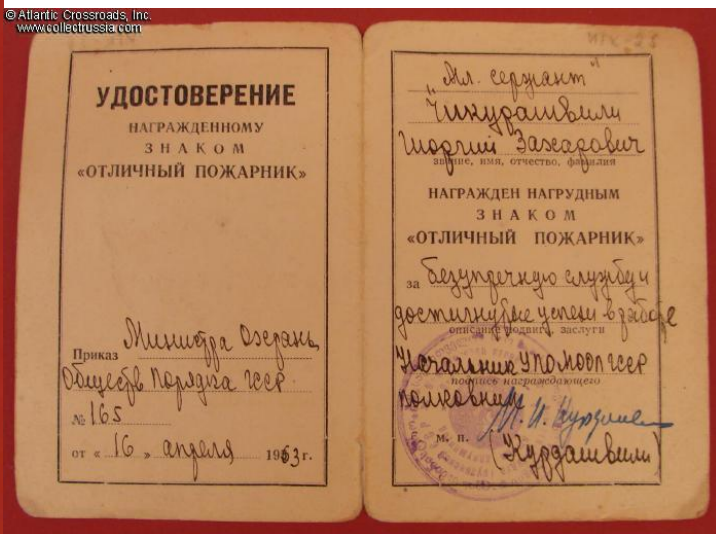 © Atlantic Crossroads, Inc.
www.collectrussia.com
УДОСТОВЕРЕНИЕ
НАГРАЖДЕННОМУ
ЗНАКОМ
«ОТЛИЧНЫЙ ПОЖАРНИК»
Приказ Министра Охраны
Обществ Порядка ГССР
№ 165
от « 16 » апреля 1963 г.
„Мл. сержант"
Чикурашвили
Гиоргий Захарович
звание, имя, отчество, фамилия
НАГРАЖДЕН НАГРУДНЫМ
ЗНАКОМ
«ОТЛИЧНЫЙ ПОЖАРНИК»
за безупречную службу и
достигнутые успехи в работе
описание подвига, заслуги
Начальник УПО МООП ГССР
подпись награждающего
полковник
м. п.
(Курдашвили)